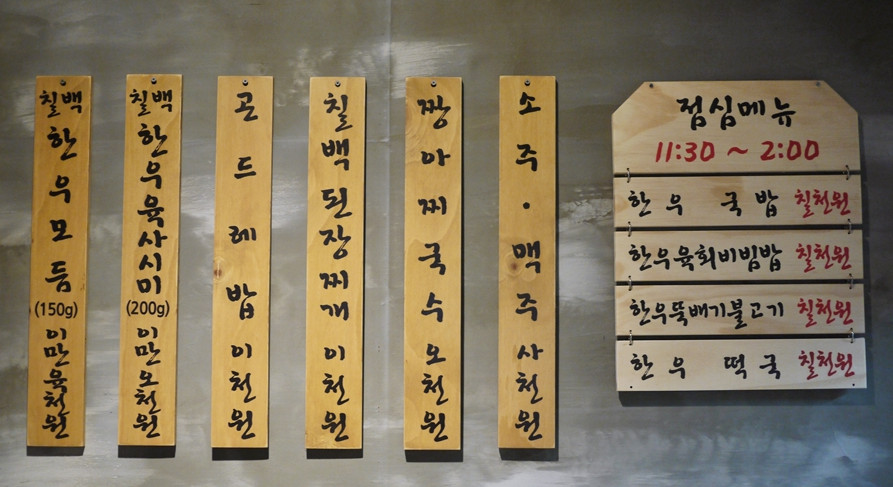 칠백한우모듬(150g)이만육천원
칠백한우육사시미(200g)이만오천원
곤드레밥이천원
칠백된장찌개이천원
짱아찌국수오천원
소주·맥주사천원
점심메뉴
11:30 ~ 2:00
한우 국밥 칠천원
한우육회비빔밥 칠천원
한우뚝배기불고기 칠천원
한우 떡국 칠천원